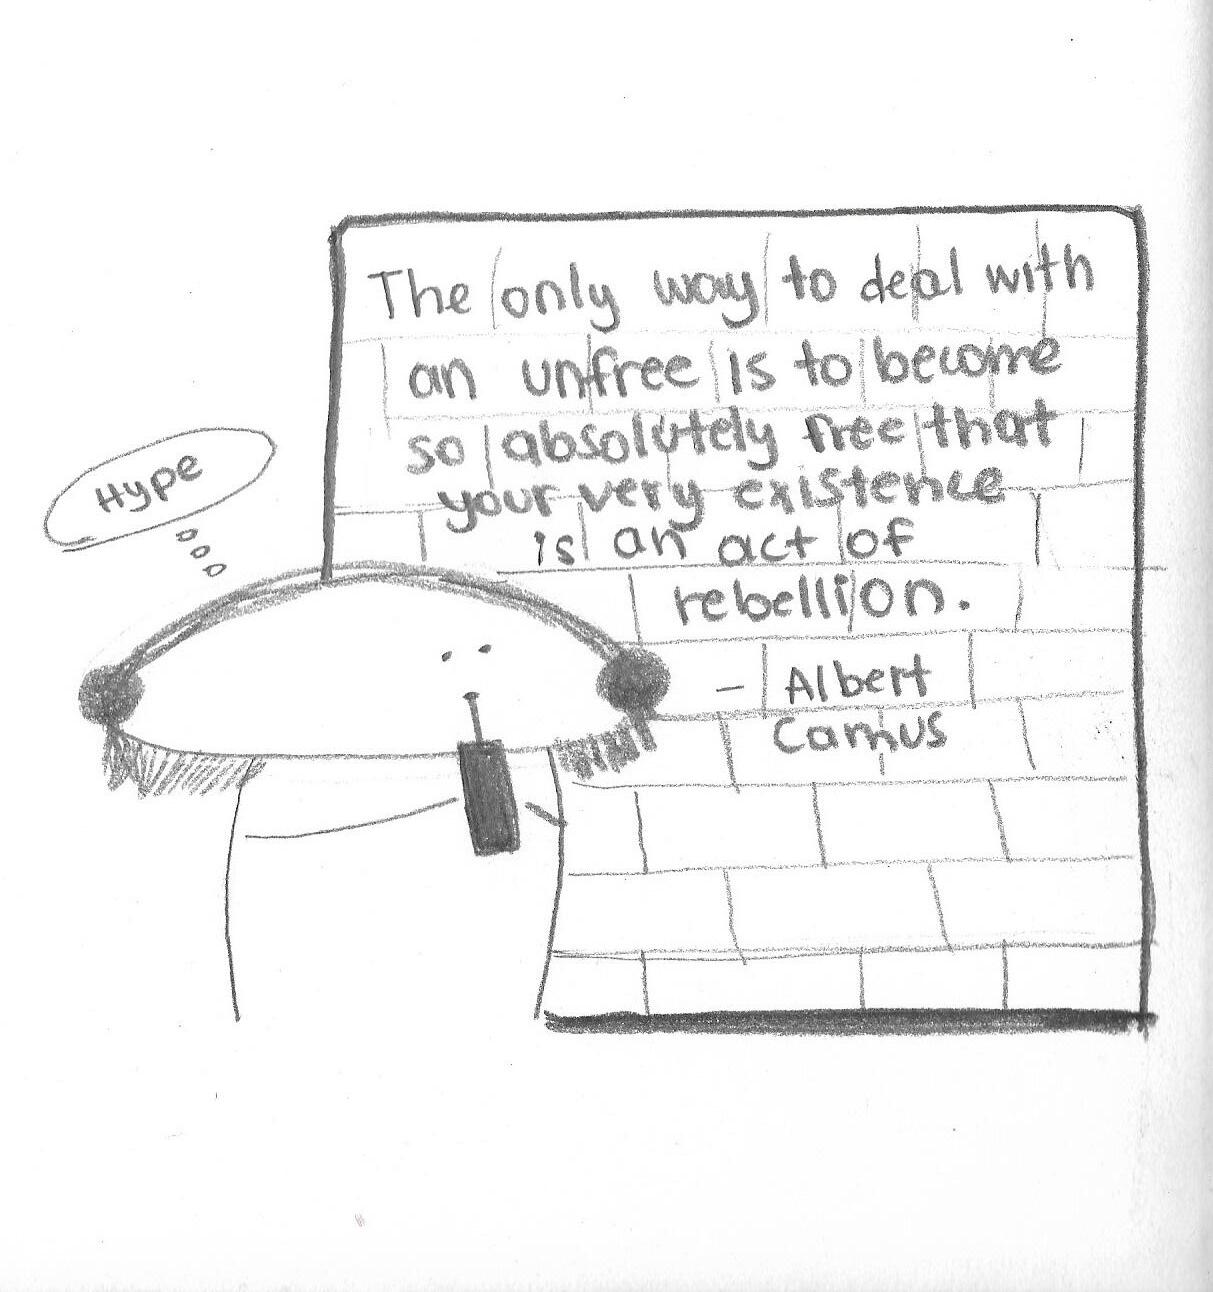 The only way to deal with
an unfree is to become
so absolutely free that
your very existence
is an act of
rebellion.
- Albert
Camus
Hype